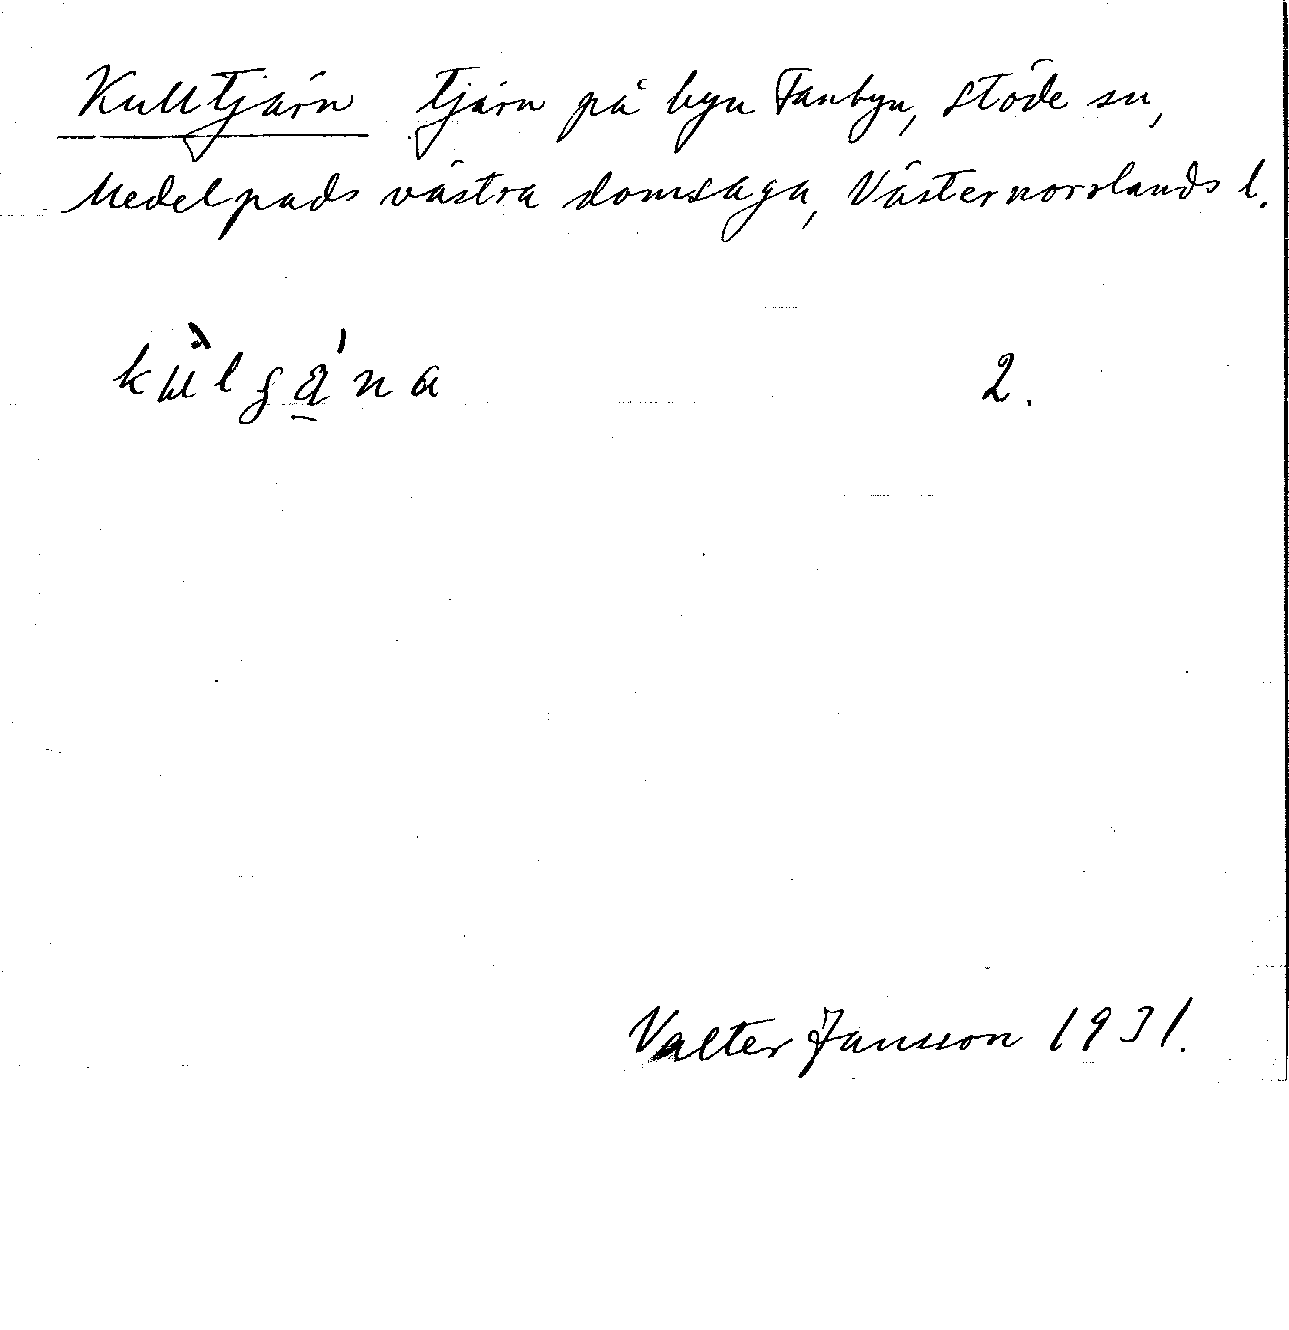 Kulltjärn tjärn på byn Fanbyn, Stöde sn,
Medelpads västra domsaga, Västernorrlands l.
2.
Valter Jansson 1931.